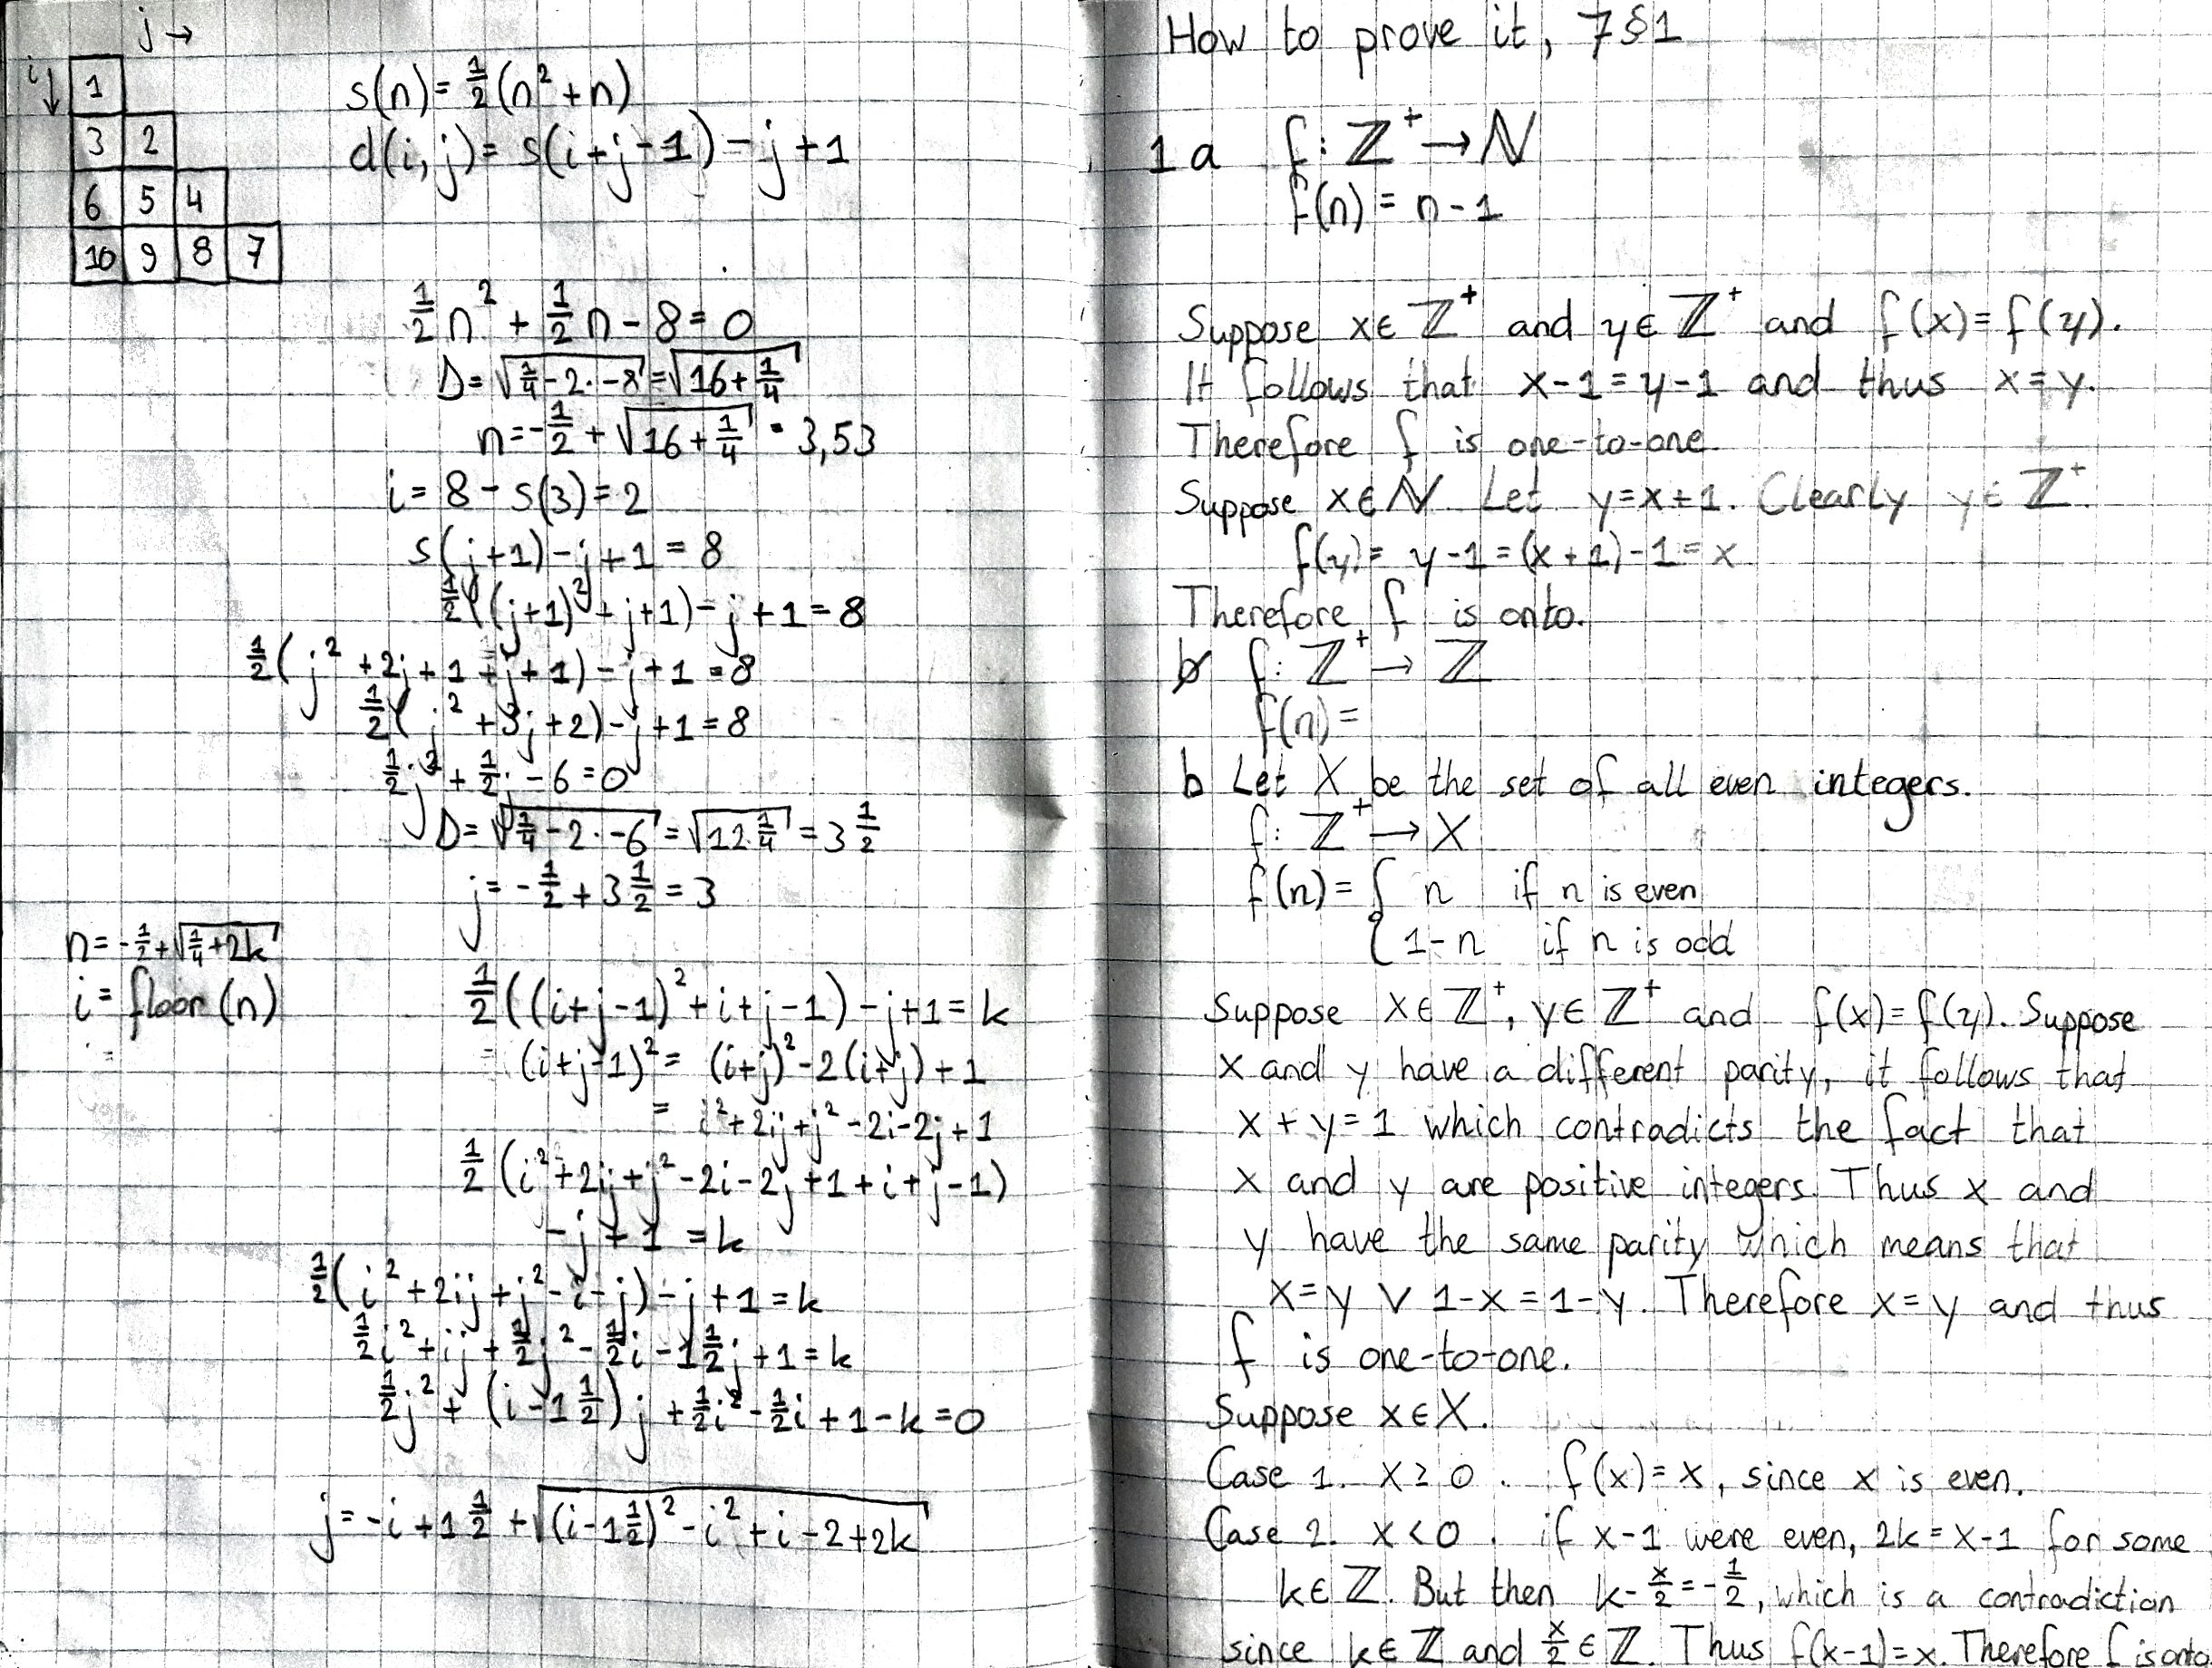 j →
i ↓
1
3 2
6 5 4
10 9 8 7
s(n) = ½(n² + n)
d(i, j) = s(i+j-1) - j + 1
½n² + ½n - 8 = 0
D = √(¼ - 2·-8) = √(16 + ¼)
n = -½ + √(16 + ¼) = 3,53
i = 8 - s(3) = 2
s(j+1) - j + 1 = 8
½((j+1)² + j+1) - j + 1 = 8
½(j² + 2j + 1 + j + 1) - j + 1 = 8
½(j² + 3j + 2) - j + 1 = 8
½j² + ½j - 6 = 0
D = √(¼ - 2·-6) = √(12¼) = 3½
j = -½ + 3½ = 3
n = -½ + √(¼ + 2k)
i = floor(n)
½((i+j-1)² + i+j-1) - j+1 = k
(i+j-1)² = (i+j)² - 2(i+j) + 1
= i² + 2ij + j² - 2i - 2j + 1
½(i² + 2ij + j² - 2i - 2j + 1 + i + j - 1)
- j + 1 = k
½(i² + 2ij + j² - i - j) - j + 1 = k
½i² + ij + ½j² - ½i - 1½j + 1 = k
½j² + (i - 1½)j + ½i² - ½i + 1 - k = 0
j = -i + 1½ + √((i - 1½)² - i² + i - 2 + 2k)
How to prove it, 7§1
1a f: ℤ⁺ → ℕ
f(n) = n - 1
Suppose x ∈ ℤ⁺ and y ∈ ℤ⁺ and f(x) = f(y).
It follows that x-1 = y-1 and thus x = y.
Therefore f is one-to-one.
Suppose x ∈ ℕ. Let y = x+1. Clearly y ∈ ℤ⁺.
f(y) = y - 1 = (x + 1) - 1 = x
Therefore f is onto.
b f: ℤ⁺ → ℤ
f(n) =
b Let X be the set of all even integers.
f: ℤ⁺ → X
f(n) = { n if n is even
{ 1-n if n is odd
Suppose x ∈ ℤ⁺, y ∈ ℤ⁺ and f(x) = f(y). Suppose
x and y have a different parity, it follows that
x + y = 1 which contradicts the fact that
x and y are positive integers. Thus x and
y have the same parity which means that
x = y ∨ 1-x = 1-y. Therefore x = y and thus
f is one-to-one.
Suppose x ∈ X.
Case 1. x ≥ 0. f(x) = x, since x is even.
Case 2. x < 0. if x-1 were even, 2k = x-1 for some
k ∈ ℤ. But then k - x/2 = -½, which is a contradiction
since k ∈ ℤ and x/2 ∈ ℤ. Thus f(x-1) = x. Therefore f is onto